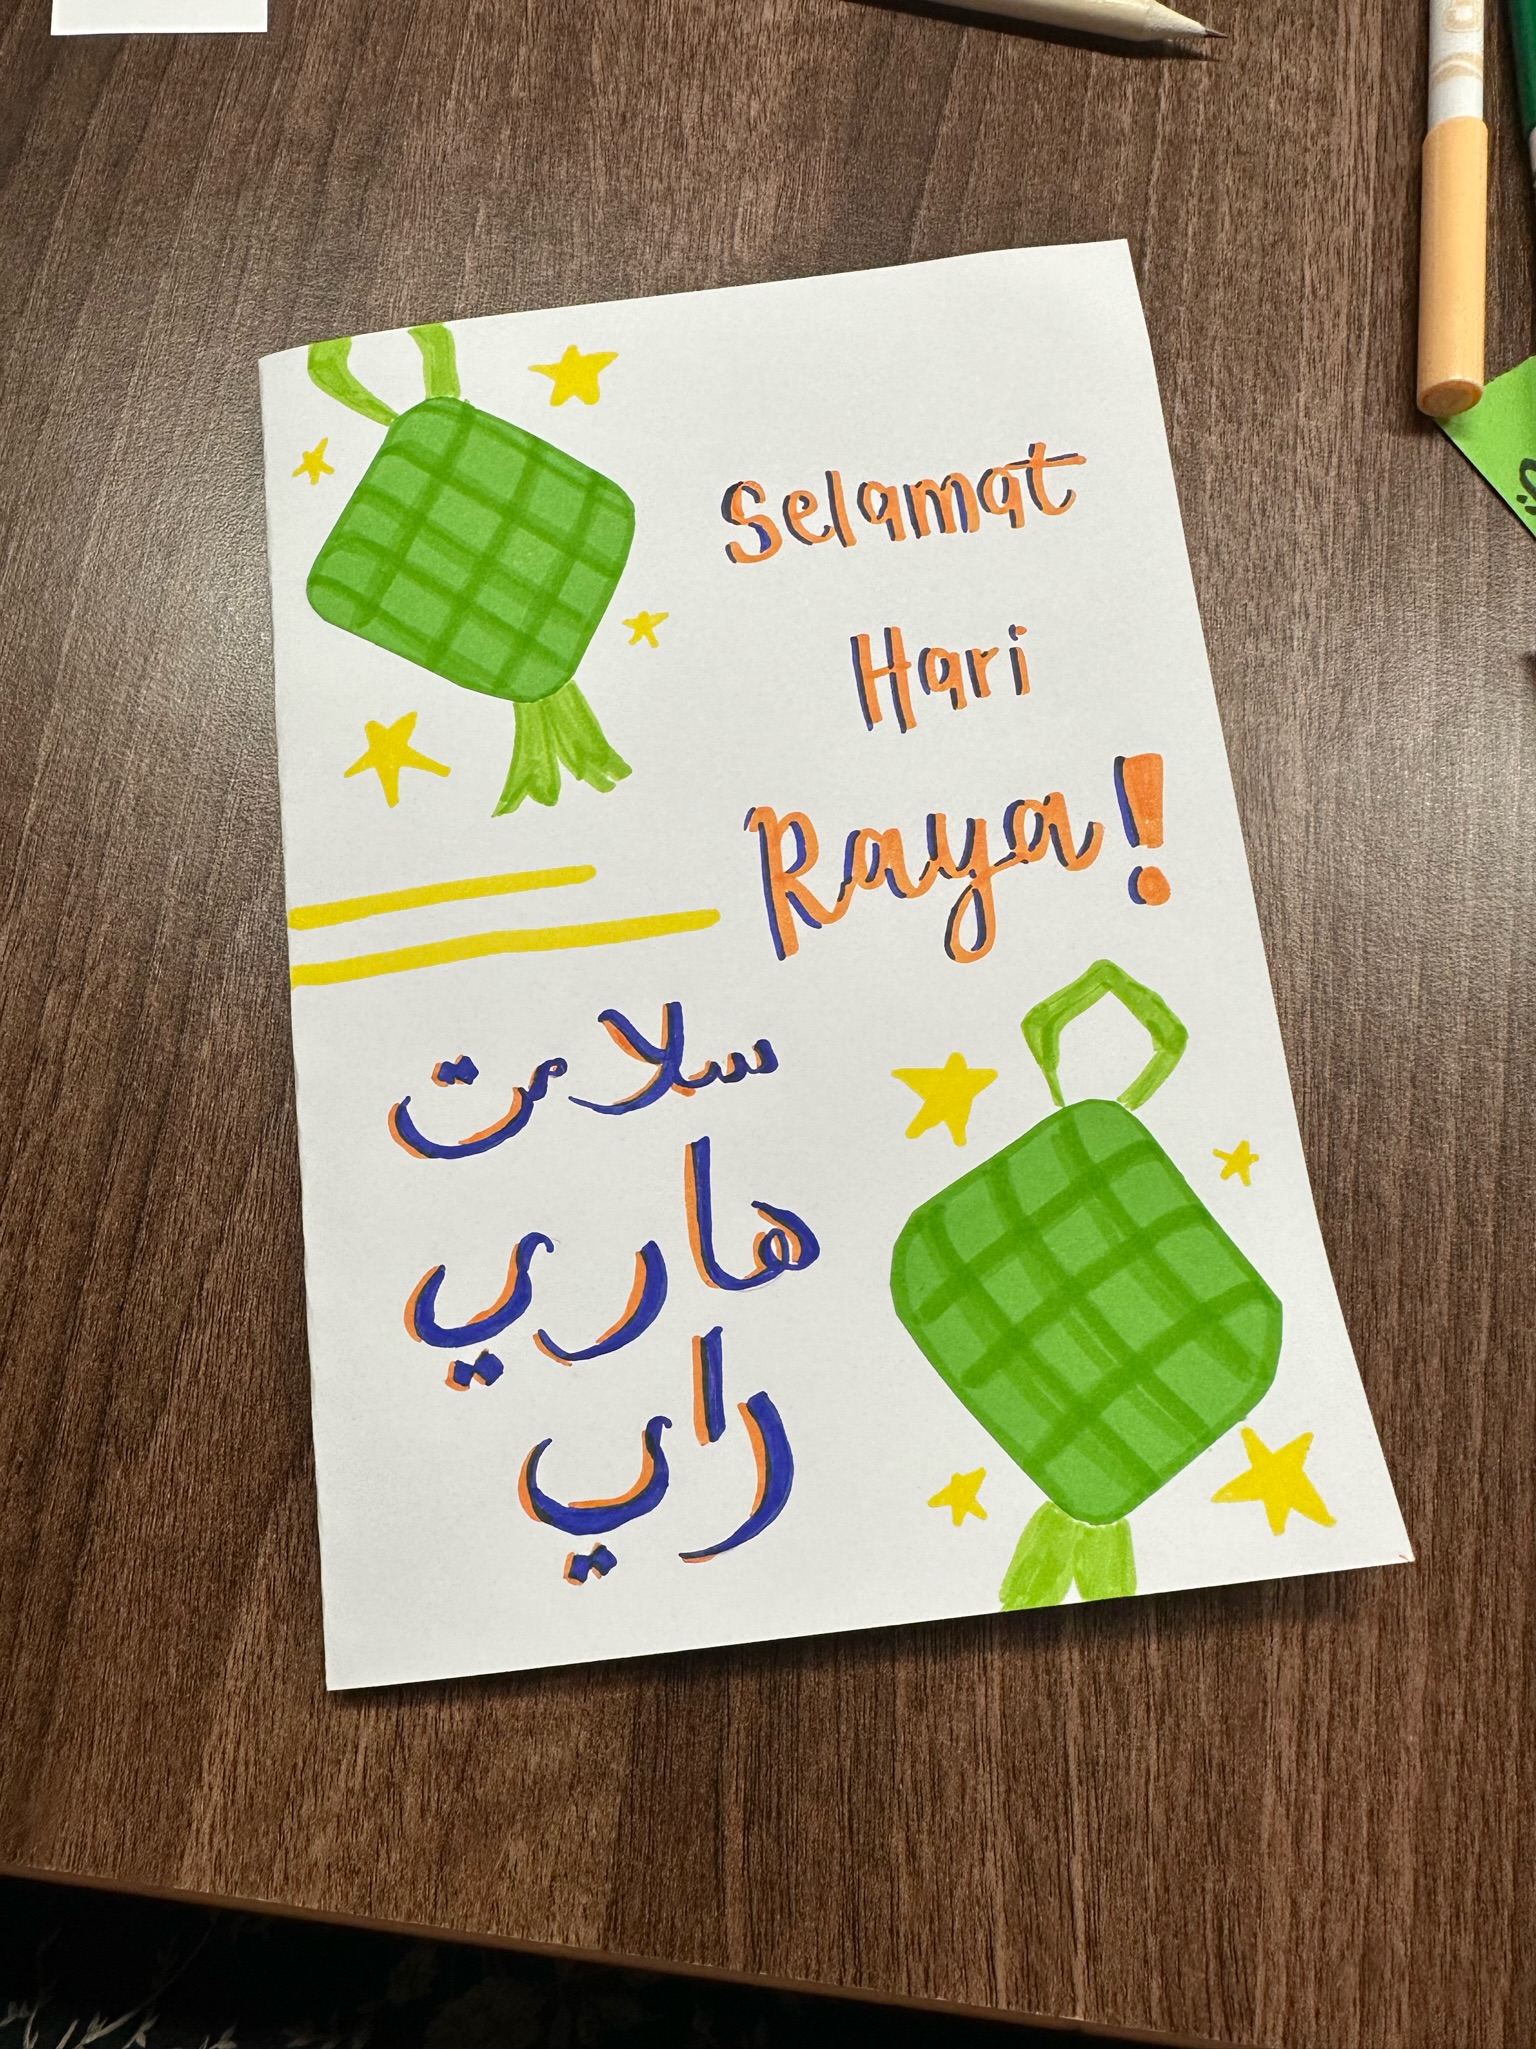 Selamat
Hari
Raya!
سلامت
هاري
راي